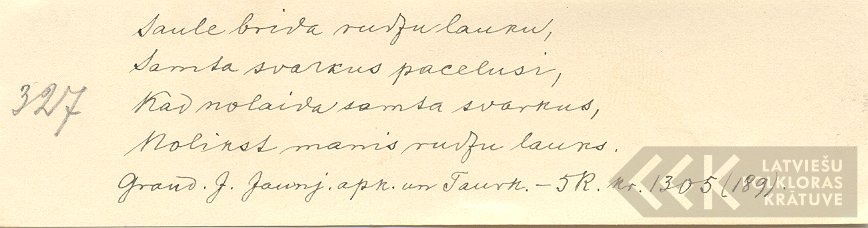 Saule brida rudzu lauku,
Samta svarkus pacelusi,
327
Kad nolaida samta svarkus,
Nolikst manis rudzu lauks.
Graud. J. Jaunj. apk. un Taurk. – 5R. nr. 1305 (189).
LATVIEŠU
FOLKLORAS
KRĀTUVE